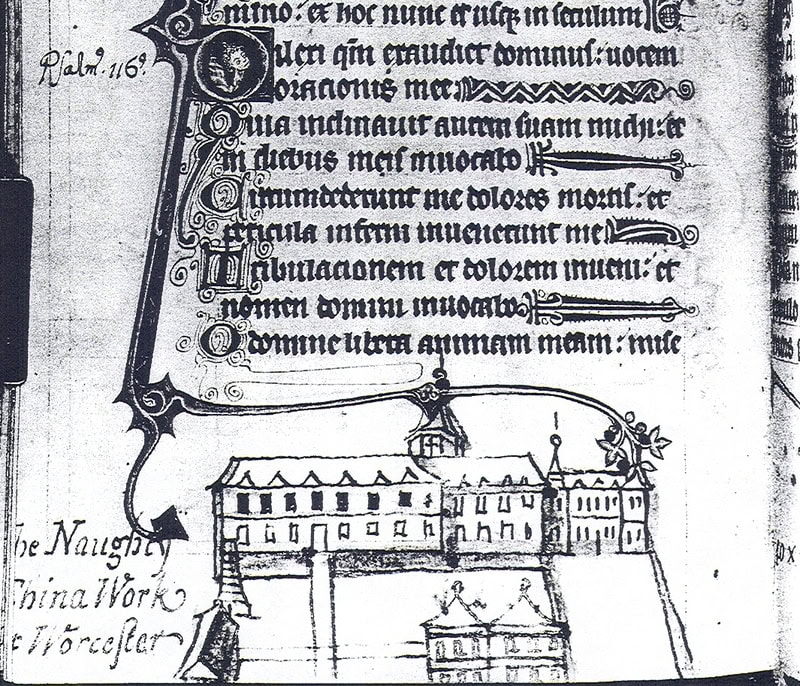 nimo: ex hoc nunc et usq in seculum
Psalm. 116.
Dilexi qm exaudiet dominus: uocem
orationis mee
Quia inclinauit aurem suam michi: et
in diebus meis inuocabo
Circumdederunt me dolores mortis: et
pericula inferni inuenerunt me
Tribulacionem et dolorem inueni: et
nomen domini inuocabo
O domine libera animam meam: mise
he Naughty
China Work
Worcester